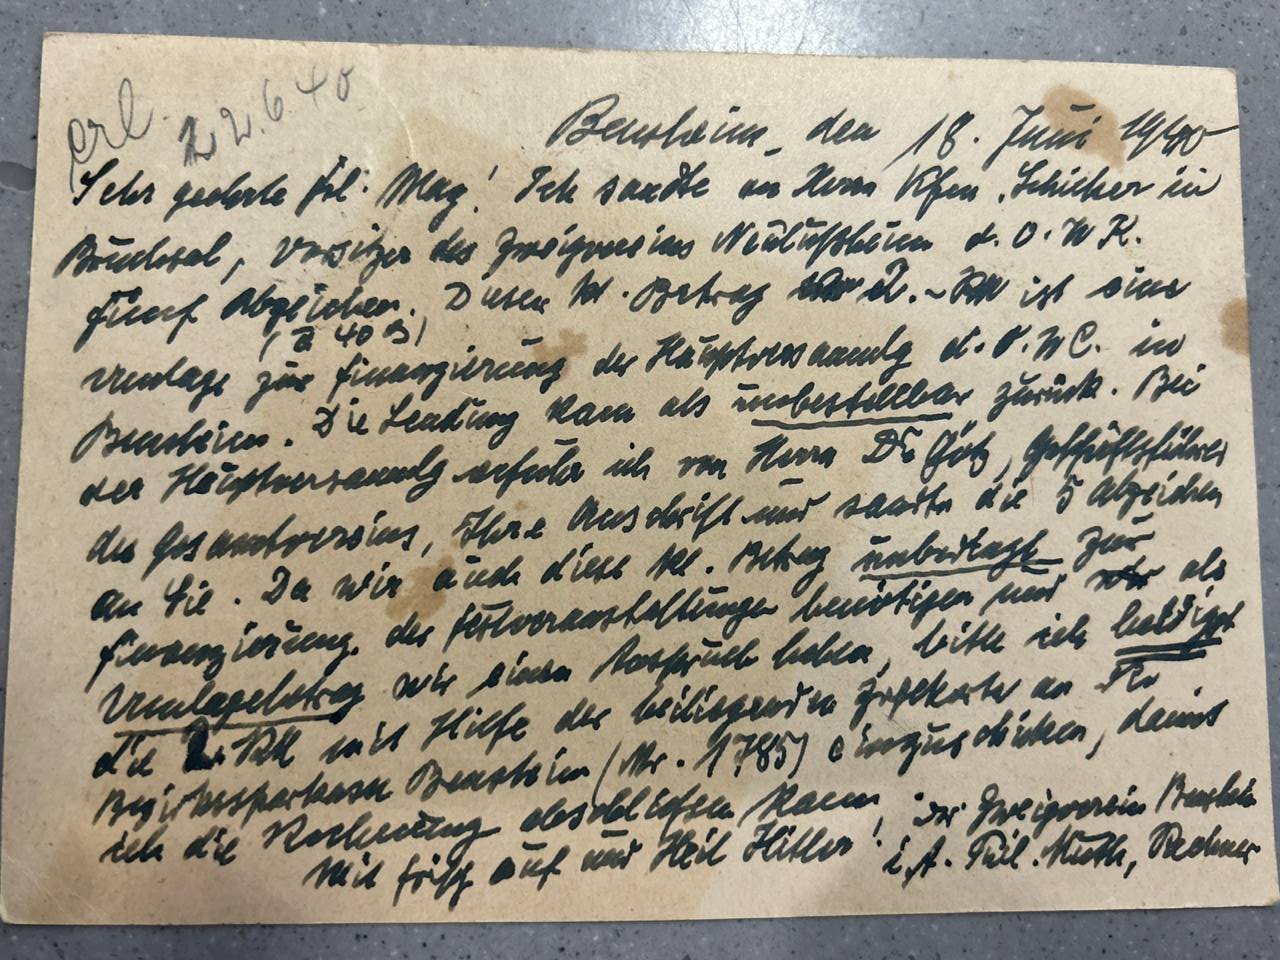 erl. 22.6.40
Bensheim, den 18. Juni 1940
Sehr geehrte Frl. May! Ich sandte an Herrn Kfm. in
Bruchsal, Vorsitzer des Zweigvereins Neulussheim d. O.W.K.
fünf Abzeichen. Dieser kl. Betrag 2.- RM ist eine
(à 40 ₰)
Umlage zur Finanzierung der Hauptversammlg d. O.W.C. in
Bensheim. Die Sendung kam als unbestellbar zurück. Bei
der Hauptversammlg erfuhr ich von Herrn Dr Götz, Geschäftsführer
des Gesamtvereins, Ihre Anschrift und sandte die 5 Abzeichen
an Sie. Da wir auch diese kl. Betrag unbedingt zur
Finanzierung der Festveranstaltungen benötigen und als
Umlagebetrag wir einen Anspruch haben, bitte ich baldigst
die 2.- RM mit Hilfe der beiliegenden Zahlkarte an
Bezirkssparkasse Bensheim (Nr. 1785) einzuschicken, damit
ich die Rechnung abschließen kann. Der Zweigverein Bensheim
Mit frisch auf und Heil Hitler! i. A. Phil. Muth, Rechner